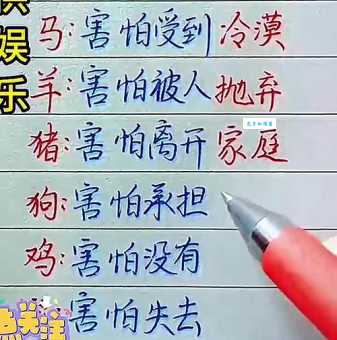 供
娱
乐
马:害怕受到冷漠
羊:害怕被人抛弃
猪:害怕离开家庭
狗:害怕承担
鸡:害怕没有
害怕失去
点关注